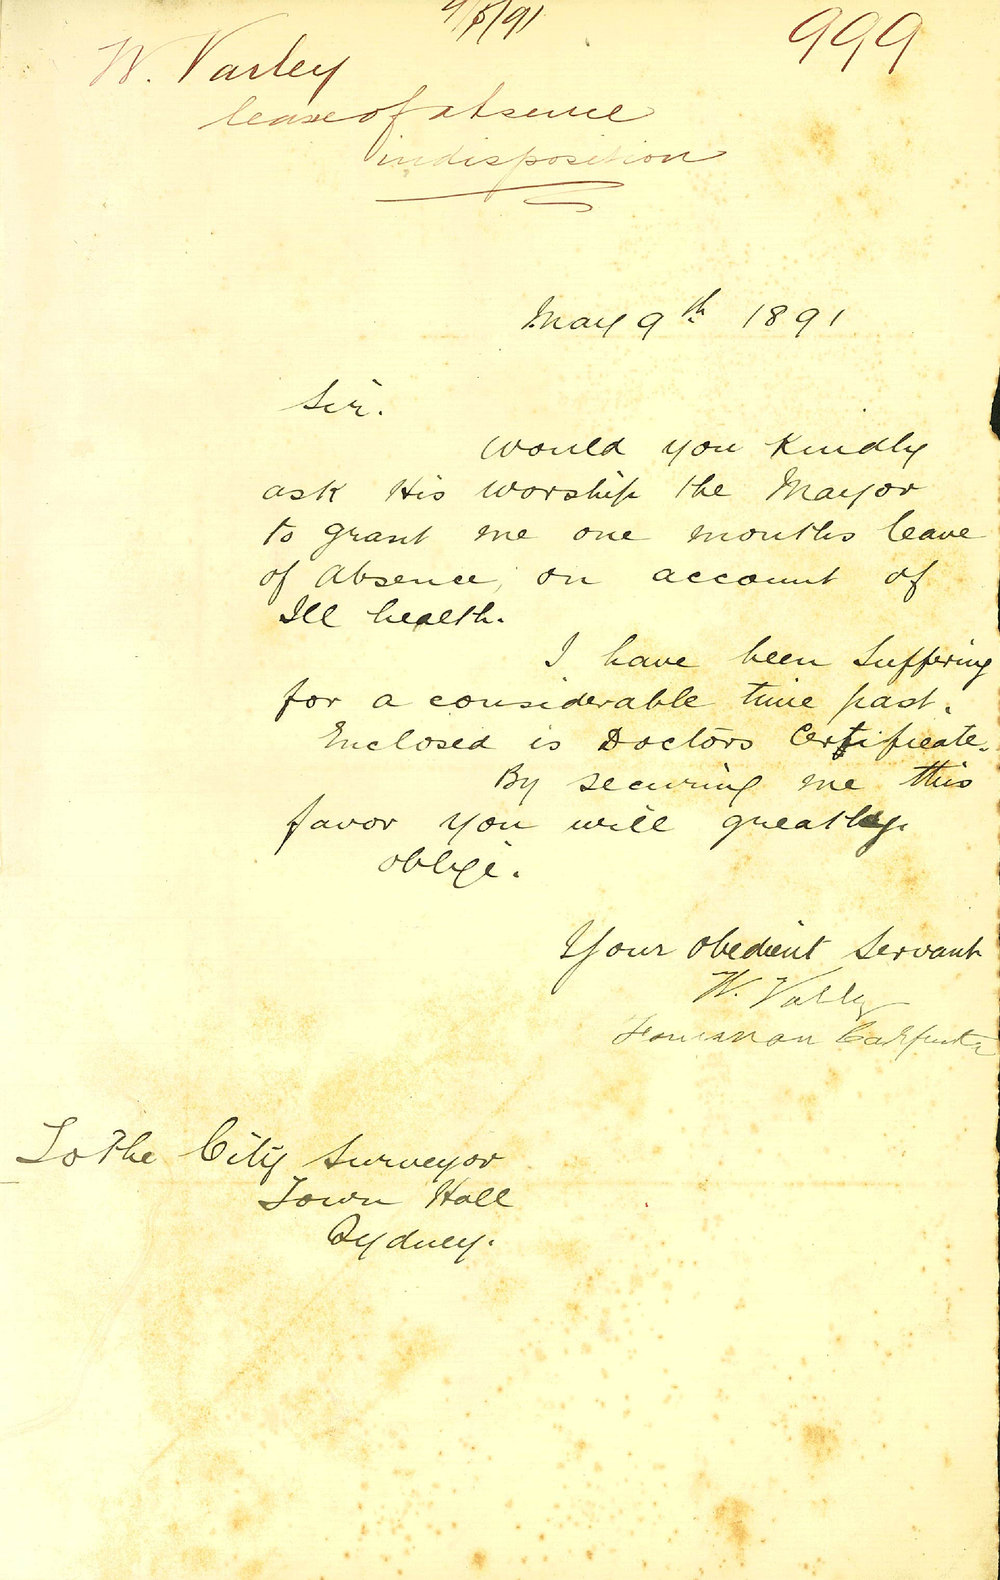 9/5/91
999
W. Varley
leave of absence
indisposition
May 9th 1891
Sir.
Would you Kindly
ask His Worship the Mayor
to grant me one months leave
of Absence, on account of
Ill health.
I have been Suffering
for a considerable time past.
Enclosed is Doctors Certificate.
By securing me this
favor you will greatly
oblige.
Your obedient Servant
W. Varley
Foreman Carpenter
To The City Surveyor
Town Hall
Sydney.